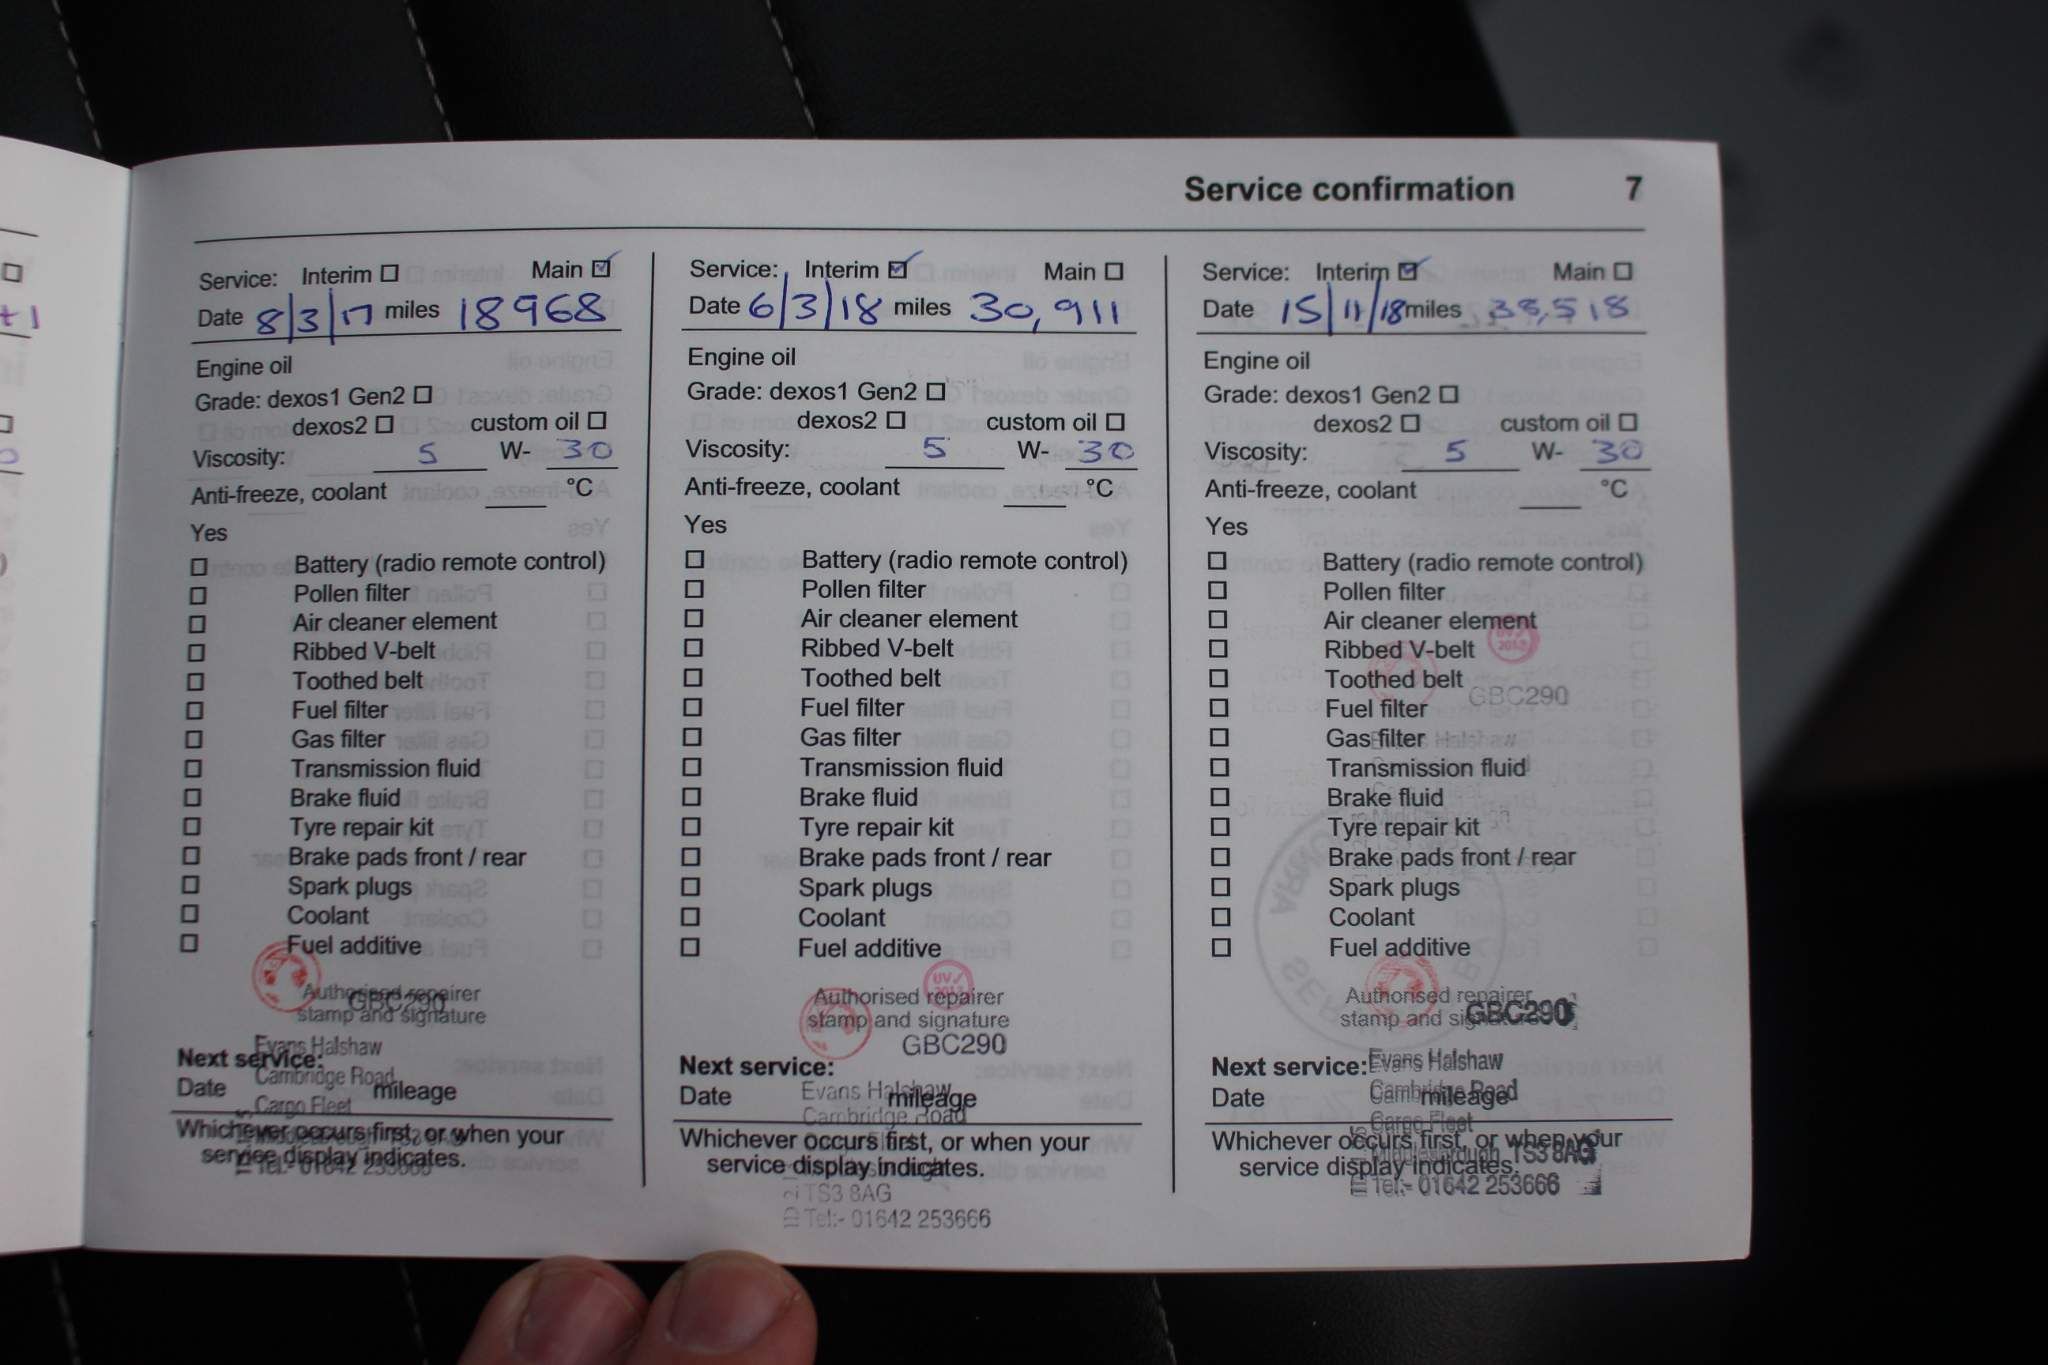 Service confirmation 7
Service: Interim Main
Date 8/3/17 miles 18968
Engine oil
Grade: dexos1 Gen2
dexos2 custom oil
Viscosity: 5 W- 30
Anti-freeze, coolant °C
Yes
Battery (radio remote control)
Pollen filter
Air cleaner element
Ribbed V-belt
Toothed belt
Fuel filter
Gas filter
Transmission fluid
Brake fluid
Tyre repair kit
Brake pads front / rear
Spark plugs
Coolant
Fuel additive
Authorised repairer
GBC290
stamp and signature
Evans Halshaw
Next service:
Cambridge Road
Date mileage
Cargo Fleet
Whichever occurs first, or when your
Middlesbrough TS3 8AG
service display indicates.
Tel:- 01642 253666
Service: Interim Main
Date 6/3/18 miles 30,911
Engine oil
Grade: dexos1 Gen2
dexos2 custom oil
Viscosity: 5 W- 30
Anti-freeze, coolant °C
Yes
Battery (radio remote control)
Pollen filter
Air cleaner element
Ribbed V-belt
Toothed belt
Fuel filter
Gas filter
Transmission fluid
Brake fluid
Tyre repair kit
Brake pads front / rear
Spark plugs
Coolant
Fuel additive
Authorised repairer
stamp and signature
GBC290
Next service:
Evans Halshaw
Date mileage
Cambridge Road
Whichever occurs first, or when your
service display indicates.
TS3 8AG
Tel:- 01642 253666
Service: Interim Main
Date 15/11/18 miles 38,518
Engine oil
Grade: dexos1 Gen2
dexos2 custom oil
Viscosity: 5 W- 30
Anti-freeze, coolant °C
Yes
Battery (radio remote control)
Pollen filter
Air cleaner element
Ribbed V-belt
Toothed belt
GBC290
Fuel filter
Gas filter
Evans Halshaw
Transmission fluid
Brake fluid
Tyre repair kit
Brake pads front / rear
Spark plugs
Coolant
Fuel additive
Authorised repairer
stamp and signature
GBC290
Next service:
Evans Halshaw
Date mileage
Cambridge Road
Cargo Fleet
Whichever occurs first, or when your
Middlesbrough TS3 8AG
service display indicates.
Tel:- 01642 253666